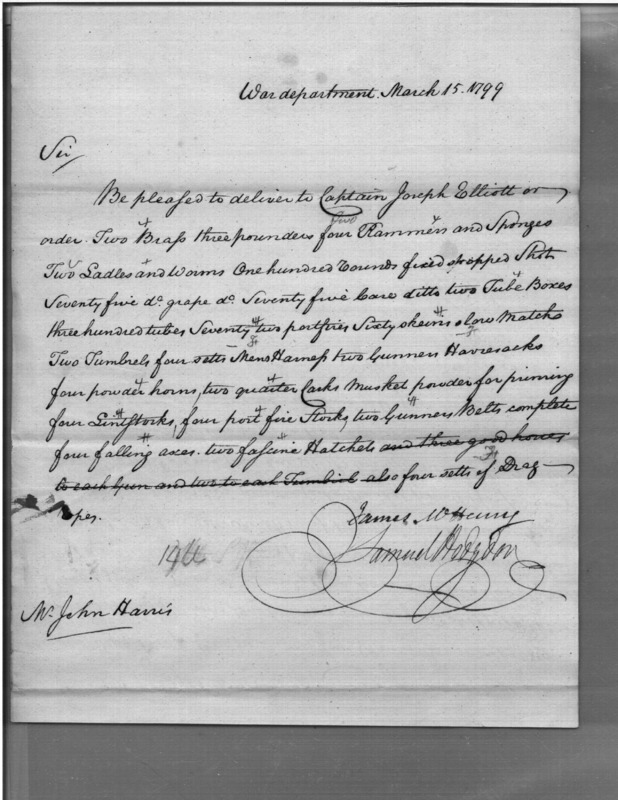 War department. March 15. 1799
Sir
Be pleased to deliver to Captain Joseph Elliott or
two
order. Two Brass three pounders four Rammers and Sponges
Two Ladles and Worms One hundred rounds fixed stropped Shot
Seventy five do. grape do. Seventy five Case ditto two Tube Boxes
three hundred tubes Seventy two portfires Sixty skeins slow Match
Two Tumbrels four setts Mens Harness two Gunners Havresacks
four powder horns, two quarter Casks Musket powder for priming
four Lintstocks, four port fire Stocks, two Gunners Belts complete
four falling axes. two fascine Hatchets and three good horses
to each Gun and two to each Tumbril also four setts of Drag
opes.
James McHenry
Samuel Hodgdon
Mr. John Harris